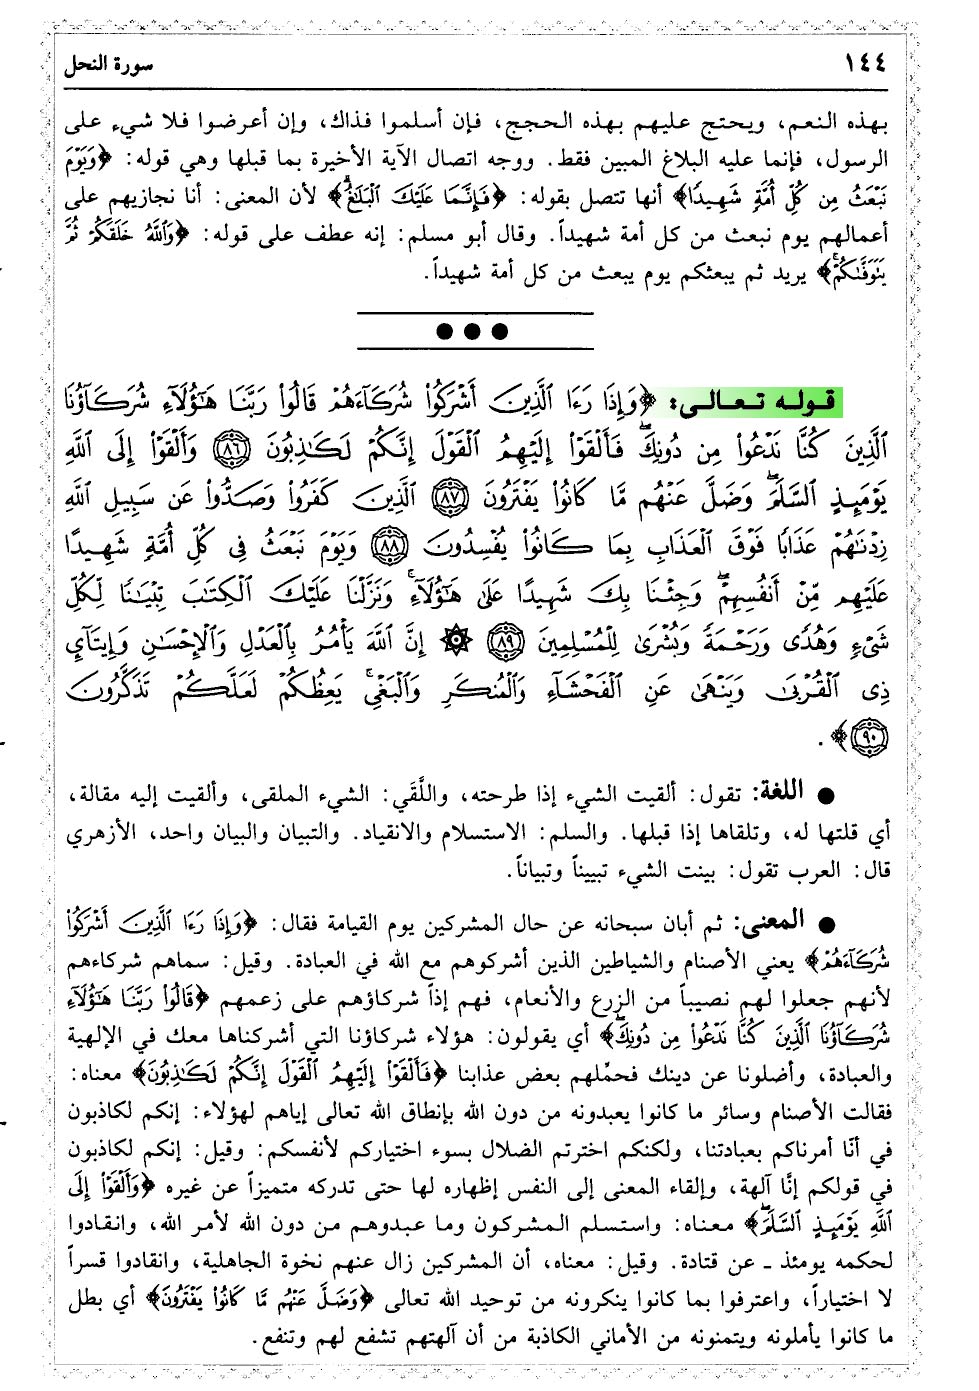 ١٤٤
سورة النحل
بهذه النعم، ويحتج عليهم بهذه الحجج، فإن أسلموا فذاك، وإن أعرضوا فلا شيء على
الرسول، فإنما عليه البلاغ المبين فقط. ووجه اتصال الآية الأخيرة بما قبلها وهي قوله: ﴿وَيَوْمَ
نَبْعَثُ مِن كُلِّ أُمَّةٍ شَهِيدًا﴾ أنها تتصل بقوله: ﴿فَإِنَّمَا عَلَيْكَ الْبَلَٰغُ﴾ لأن المعنى: أنا نجازيهم على
أعمالهم يوم نبعث من كل أمة شهيداً. وقال أبو مسلم: إنه عطف على قوله: ﴿وَاللَّهُ خَلَقَكُمْ ثُمَّ
يَتَوَفَّىٰكُمْ﴾ يريد ثم يبعثكم يوم يبعث من كل أمة شهيداً.
قوله تعالى: ﴿وَإِذَا رَءَا الَّذِينَ أَشْرَكُواْ شُرَكَآءَهُمْ قَالُواْ رَبَّنَا هَٰٓؤُلَآءِ شُرَكَآؤُنَا
الَّذِينَ كُنَّا نَدْعُواْ مِن دُونِكَۖ فَأَلْقَوْاْ إِلَيْهِمُ الْقَوْلَ إِنَّكُمْ لَكَٰذِبُونَ ﴿٨٦﴾ وَأَلْقَوْاْ إِلَى اللَّهِ
يَوْمَئِذٍ السَّلَمَۖ وَضَلَّ عَنْهُم مَّا كَانُواْ يَفْتَرُونَ ﴿٨٧﴾ الَّذِينَ كَفَرُواْ وَصَدُّواْ عَن سَبِيلِ اللَّهِ
زِدْنَٰهُمْ عَذَابًا فَوْقَ الْعَذَابِ بِمَا كَانُواْ يُفْسِدُونَ ﴿٨٨﴾ وَيَوْمَ نَبْعَثُ فِي كُلِّ أُمَّةٍ شَهِيدًا
عَلَيْهِم مِّنْ أَنفُسِهِمْۖ وَجِئْنَا بِكَ شَهِيدًا عَلَىٰ هَٰٓؤُلَآءِۚ وَنَزَّلْنَا عَلَيْكَ الْكِتَٰبَ تِبْيَٰنًا لِّكُلِّ
شَيْءٍ وَهُدًى وَرَحْمَةً وَبُشْرَىٰ لِلْمُسْلِمِينَ ﴿٨٩﴾ ۞ إِنَّ اللَّهَ يَأْمُرُ بِالْعَدْلِ وَالْإِحْسَٰنِ وَإِيتَآيِٕ
ذِي الْقُرْبَىٰ وَيَنْهَىٰ عَنِ الْفَحْشَآءِ وَالْمُنكَرِ وَالْبَغْيِۚ يَعِظُكُمْ لَعَلَّكُمْ تَذَكَّرُونَ
﴿٩٠﴾﴾.
● اللغة: تقول: ألقيت الشيء إذا طرحته، واللَّقَي: الشيء الملقى، وألقيت إليه مقالة،
أي قلتها له، وتلقاها إذا قبلها. والسلم: الاستسلام والانقياد. والتبيان والبيان واحد، الأزهري
قال: العرب تقول: بينت الشيء تبييناً وتبياناً.
● المعنى: ثم أبان سبحانه عن حال المشركين يوم القيامة فقال: ﴿وَإِذَا رَءَا الَّذِينَ أَشْرَكُواْ
شُرَكَآءَهُمْ﴾ يعني الأصنام والشياطين الذين أشركوهم مع الله في العبادة. وقيل: سماهم شركاءهم
لأنهم جعلوا لهم نصيباً من الزرع والأنعام، فهم إذاً شركاؤهم على زعمهم ﴿قَالُواْ رَبَّنَا هَٰٓؤُلَآءِ
شُرَكَآؤُنَا الَّذِينَ كُنَّا نَدْعُواْ مِن دُونِكَۖ﴾ أي يقولون: هؤلاء شركاؤنا التي أشركناها معك في الإلهية
والعبادة، وأضلونا عن دينك فحمِّلهم بعض عذابنا ﴿فَأَلْقَوْاْ إِلَيْهِمُ الْقَوْلَ إِنَّكُمْ لَكَٰذِبُونَ﴾ معناه:
فقالت الأصنام وسائر ما كانوا يعبدونه من دون الله بإنطاق الله تعالى إياهم لهؤلاء: إنكم لكاذبون
في أنّا أمرناكم بعبادتنا، ولكنكم اخترتم الضلال بسوء اختياركم لأنفسكم: وقيل: إنكم لكاذبون
في قولكم إنَّا آلهة، وإلقاء المعنى إلى النفس إظهاره لها حتى تدركه متميزاً عن غيره ﴿وَأَلْقَوْاْ إِلَى
اللَّهِ يَوْمَئِذٍ السَّلَمَۖ﴾ معناه: واستسلم المشركون وما عبدوهم من دون الله لأمر الله، وانقادوا
لحكمه يومئذ ـ عن قتادة. وقيل: معناه، أن المشركين زال عنهم نخوة الجاهلية، وانقادوا قسراً
لا اختياراً، واعترفوا بما كانوا ينكرونه من توحيد الله تعالى ﴿وَضَلَّ عَنْهُم مَّا كَانُواْ يَفْتَرُونَ﴾ أي بطل
ما كانوا يأملونه ويتمنونه من الأماني الكاذبة من أن آلهتهم تشفع لهم وتنفع.